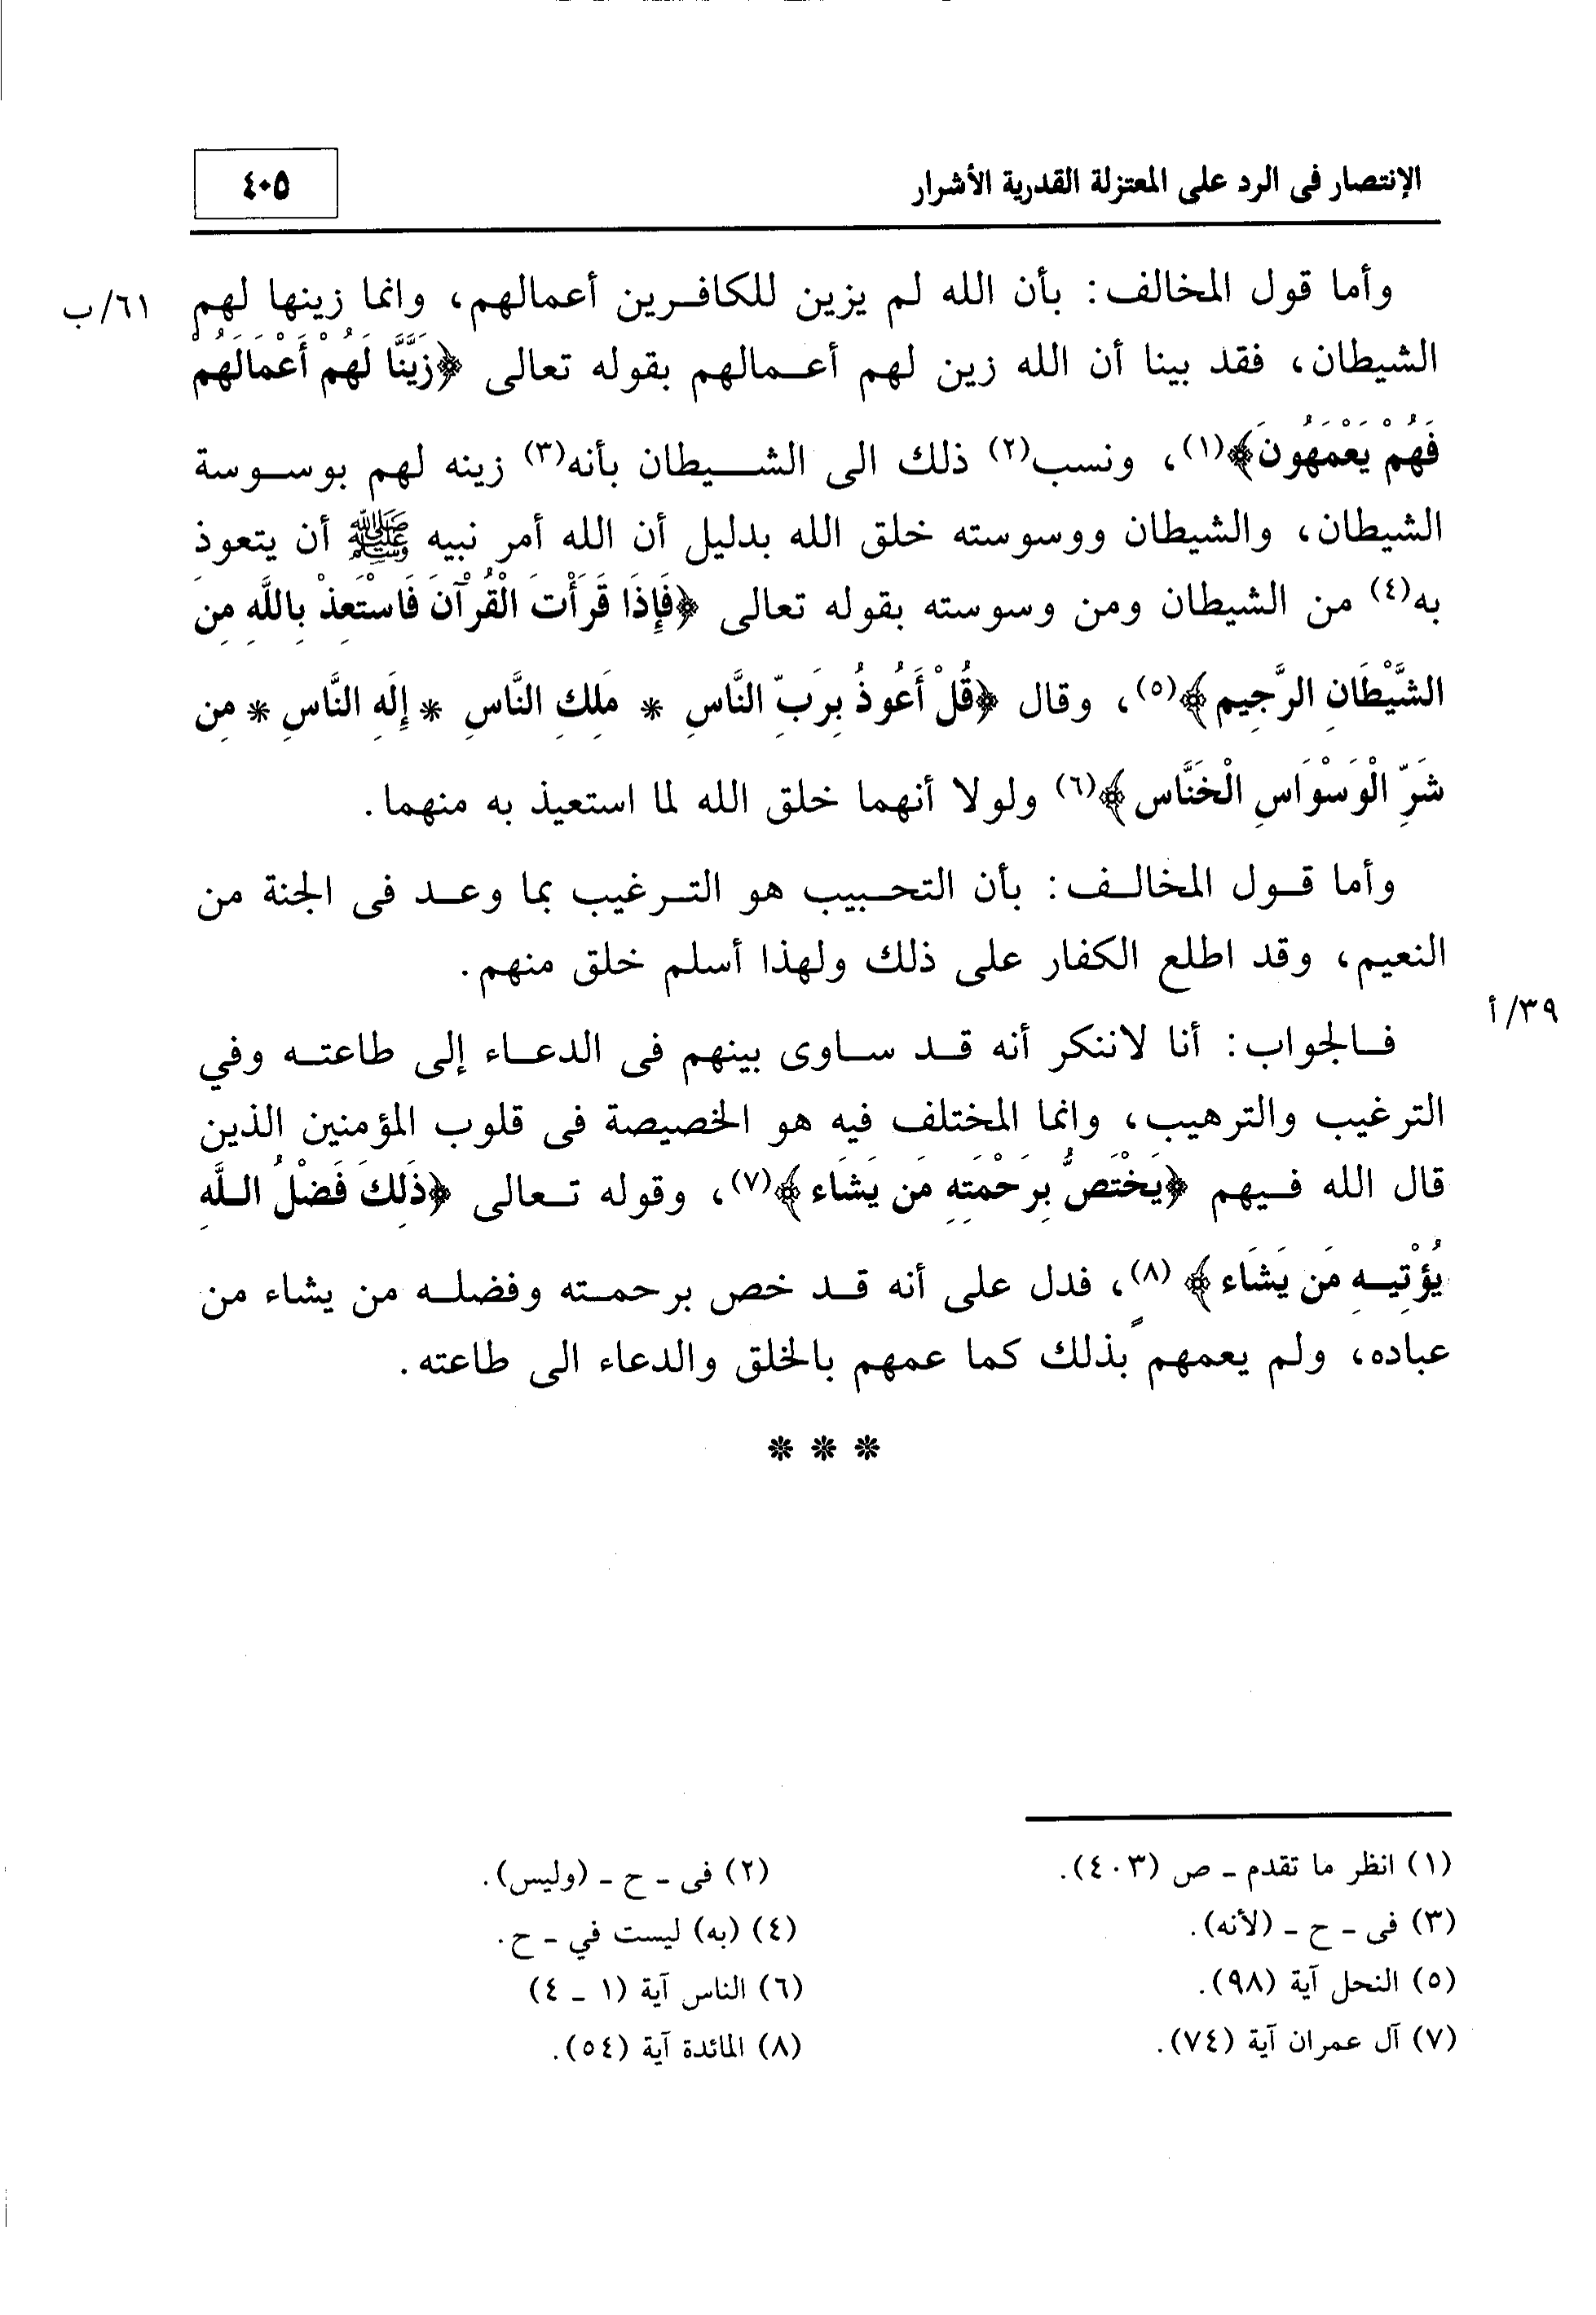 الإنتصار فى الرد على المعتزلة القدرية الأشرار
٤٠٥
وأما قول المخالف: بأن الله لم يزين للكافرين أعمالهم، وانما زينها لهم
٦١/ب
الشيطان، فقد بينا أن الله زين لهم أعمالهم بقوله تعالى ﴿زَيَّنَّا لَهُمْ أَعْمَالَهُمْ
فَهُمْ يَعْمَهُونَ﴾(١)، ونسب(٢) ذلك الى الشيطان بأنه(٣) زينه لهم بوسوسة
الشيطان، والشيطان ووسوسته خلق الله بدليل أن الله أمر نبيه ﷺ أن يتعوذ
به(٤) من الشيطان ومن وسوسته بقوله تعالى ﴿فَإِذَا قَرَأْتَ الْقُرْآنَ فَاسْتَعِذْ بِاللَّهِ مِنَ
الشَّيْطَانِ الرَّجِيمِ﴾(٥)، وقال ﴿قُلْ أَعُوذُ بِرَبِّ النَّاسِ * مَلِكِ النَّاسِ * إِلَهِ النَّاسِ * مِن
شَرِّ الْوَسْوَاسِ الْخَنَّاس﴾(٦) ولولا أنهما خلق الله لما استعيذ به منهما.
وأما قول المخالف: بأن التحبيب هو الترغيب بما وعد فى الجنة من
النعيم، وقد اطلع الكفار على ذلك ولهذا أسلم خلق منهم.
٣٩/أ
فالجواب: أنا لاننكر أنه قد ساوى بينهم فى الدعاء إلى طاعته وفي
الترغيب والترهيب، وانما المختلف فيه هو الخصيصة فى قلوب المؤمنين الذين
قال الله فيهم ﴿يَخْتَصُّ بِرَحْمَتِهِ مَن يَشَاء﴾(٧)، وقوله تعالى ﴿ذَلِكَ فَضْلُ اللَّهِ
يُؤْتِيهِ مَن يَشَاء﴾ (٨)، فدل على أنه قد خص برحمته وفضله من يشاء من
عباده، ولم يعمهم بذلك كما عمهم بالخلق والدعاء الى طاعته.
* * *
(١) انظر ما تقدم ـ ص (٤٠٣).
(٢) فى ـ ح ـ (وليس).
(٣) فى ـ ح ـ (لأنه).
(٤) (به) ليست في ـ ح.
(٥) النحل آية (٩٨).
(٦) الناس آية (١ ـ ٤)
(٧) آل عمران آية (٧٤).
(٨) المائدة آية (٥٤).